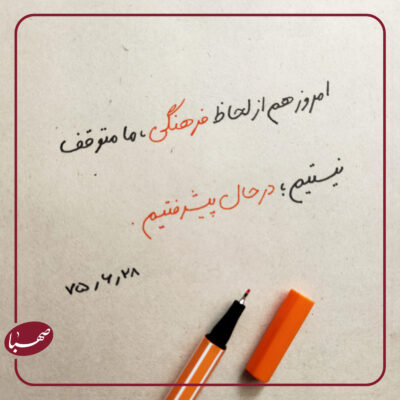 امروز هم از لحاظ فرهنگی، ما متوقف
نیستیم؛ در حال پیشرفتیم.
۷۵٫۶٫۲۸
صهبا